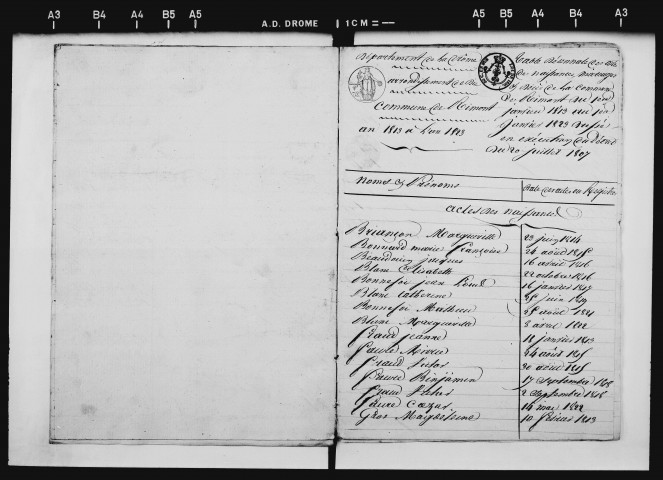 A3 B4 A4 B5 A5 A.D. DROME 1CM A5 B5 A4 B4 A3
Département de la Drôme
arrondissement de
Commune de Rimont
an 1813 à l'an 1823
Table Décennale des
de naissance mariages
de la Commune
de Rimont du 1er
janvier 1813 au 1er
janvier 1823
en exécution du décret
du 20 juillet 1807
Noms & Prénoms
Date des actes au Registre
Actes des naissances
Briançon Marguerite 23 juin 1814
Bonnard marie françoise 24 aout 1815
Beaudouin jacques 16 avril 1816
Blanc Elisabeth 22 octobre 1816
Bonnefoi jean Louis 16 janvier 1817
Blanc Catherine 25 juin 1819
Bonnefoi Mathieu 25 aout 1821
Blanc Marguerite 8 avril 1822
Jeanne 18 janvier 1813
24 aout 1815
30 aout 1815
Benjamin 17 Septembre 1818
2 Septembre 1818
14 mai 1822
Gros Magdeleine 10 février 1813